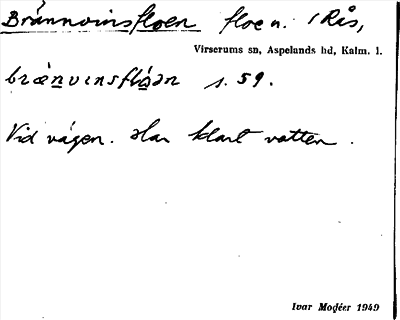 Brännvinsfloen floe n. i Rås,
Virserums sn, Aspelands hd, Kalm. l.
brænvinsflóən s. 59.
Vid vägen. Har klart vatten.
Ivar Modéer 1949